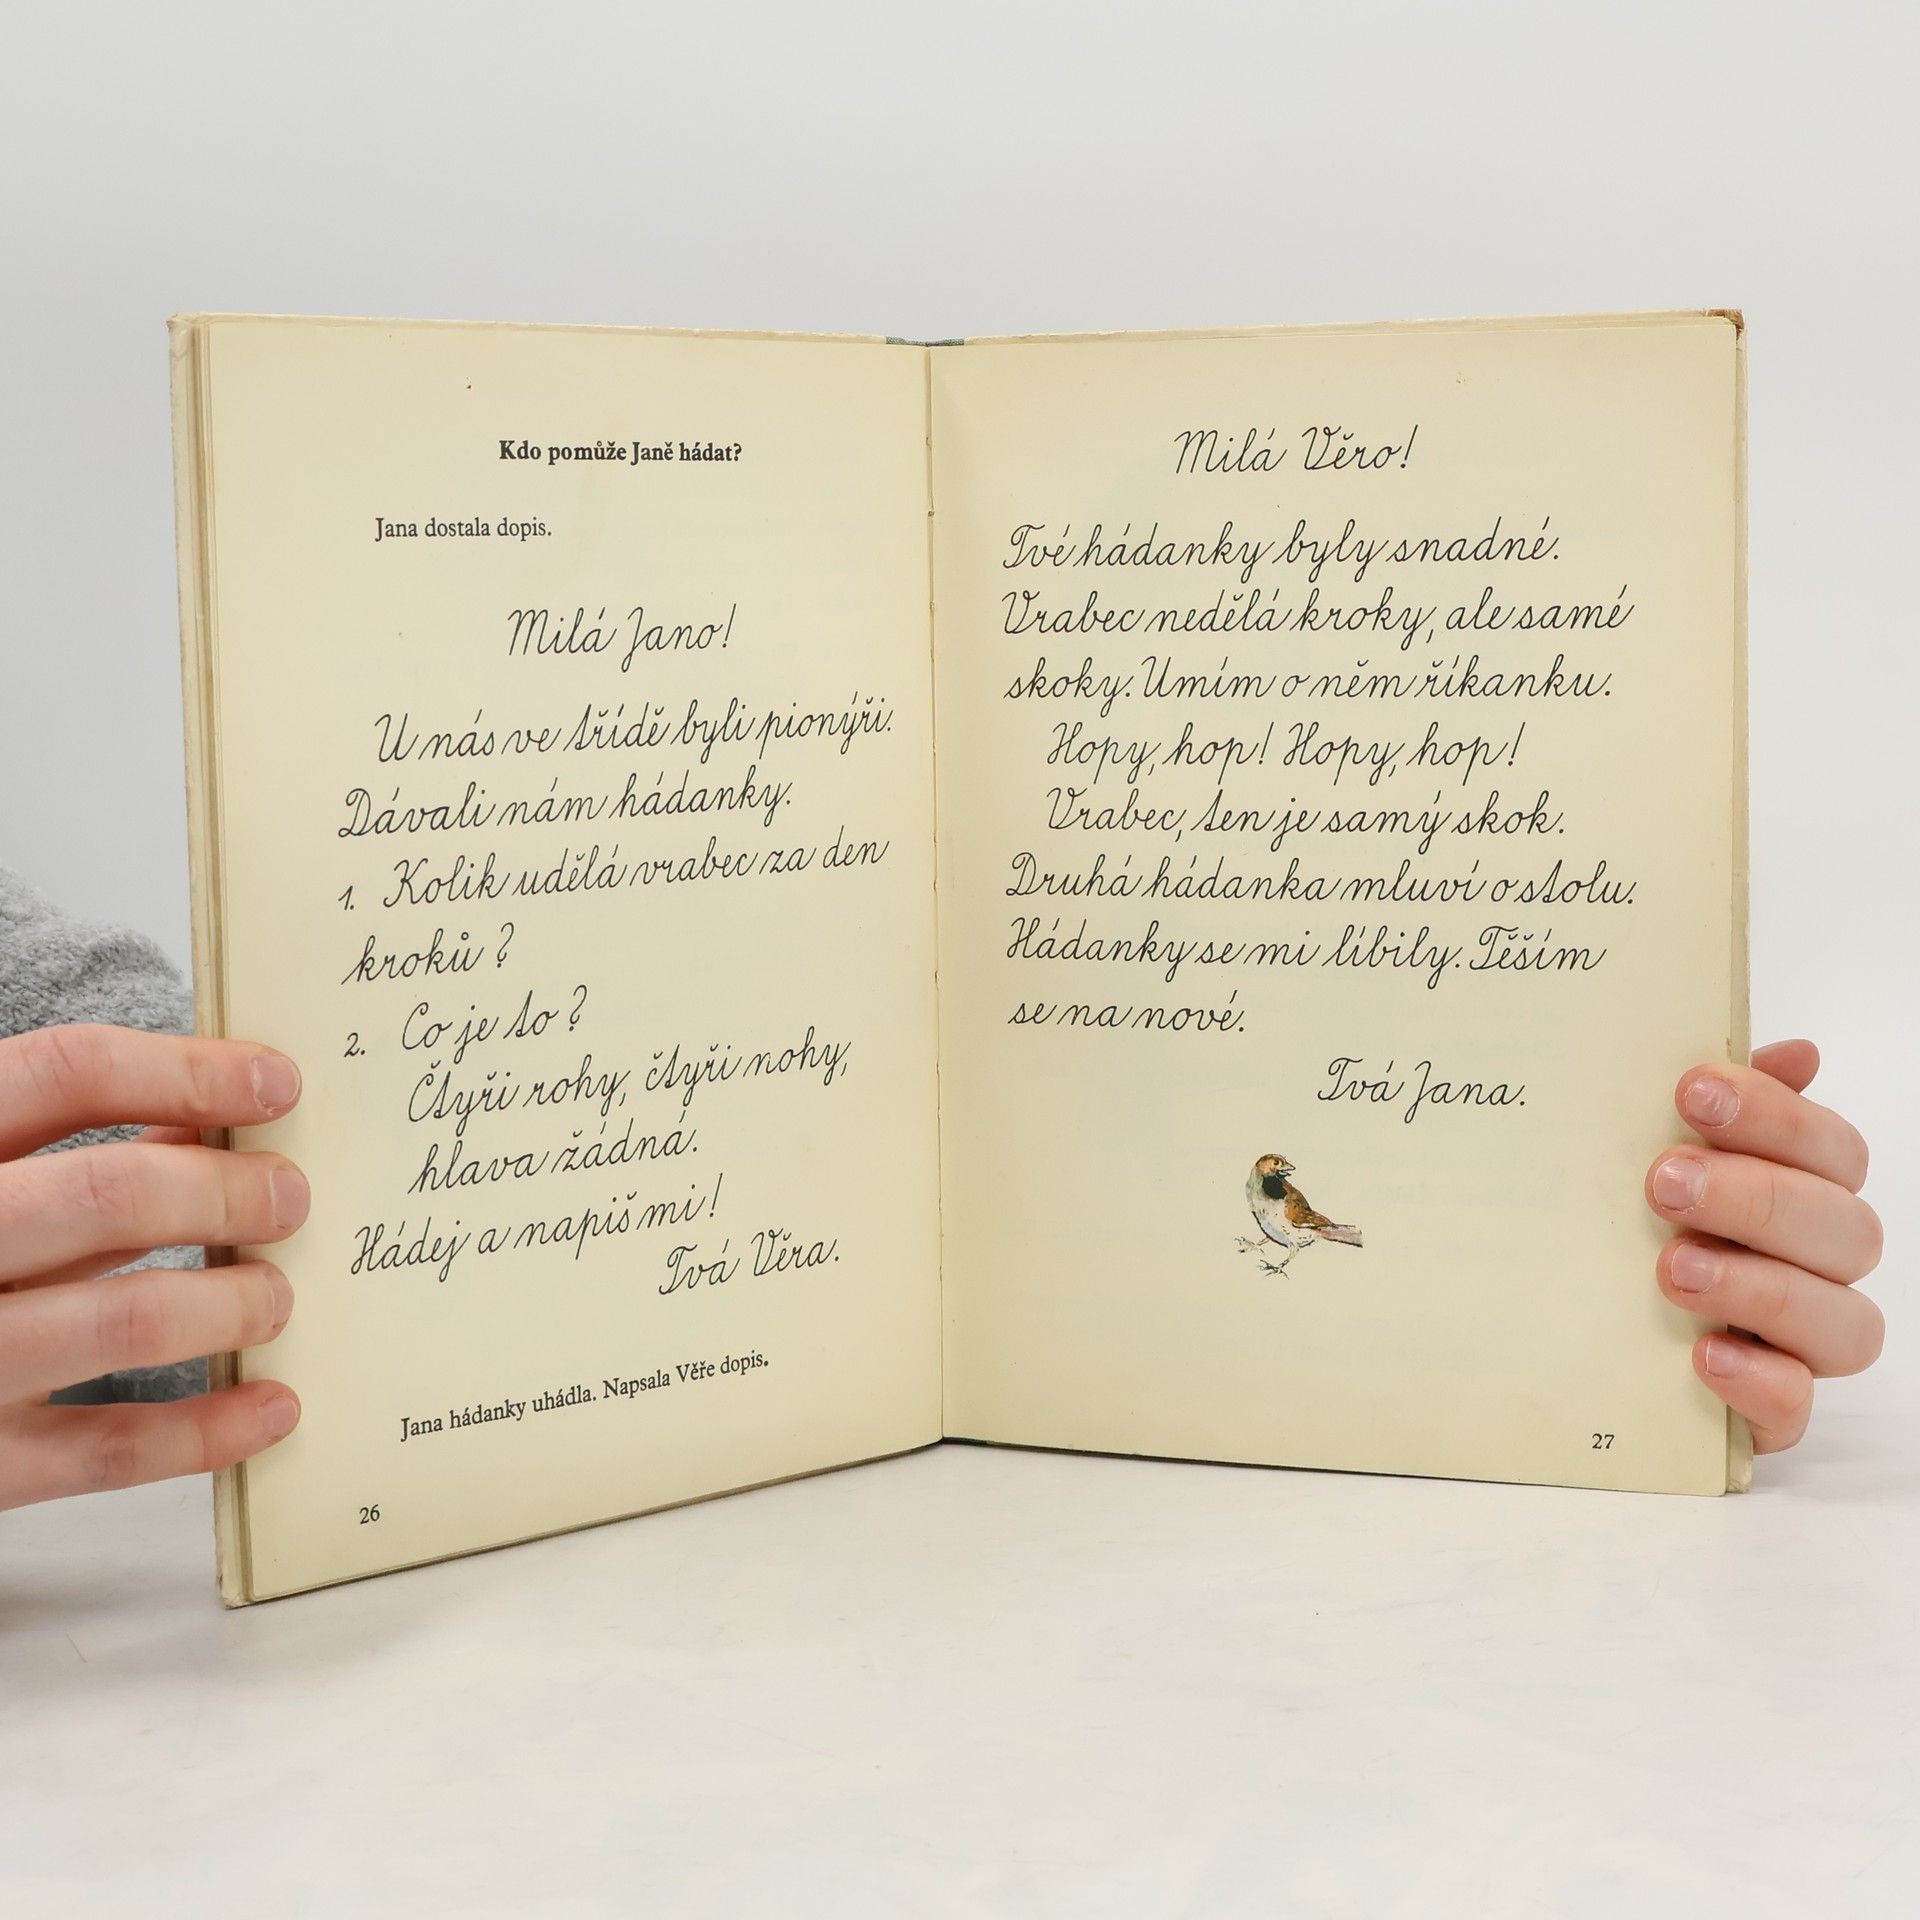 Kdo pomůže Janě hádat?
Jana dostala dopis.
Milá Jano!
U nás ve třídě byli pionýři.
Dávali nám hádanky.
1. Kolik udělá vrabec za den
kroků?
2. Co je to?
Čtyři rohy, čtyři nohy,
hlava žádná.
Hádej a napiš mi!
Tvá Věra.
Jana hádanky uhádla. Napsala Věře dopis.
26
Milá Věro!
Tvé hádanky byly snadné.
Vrabec nedělá kroky, ale samé
skoky. Umím o něm říkanku.
Hopy, hop! Hopy, hop!
Vrabec, ten je samý skok.
Druhá hádanka mluví o stolu.
Hádanky se mi líbily. Těším
se na nové.
Tvá Jana.
27